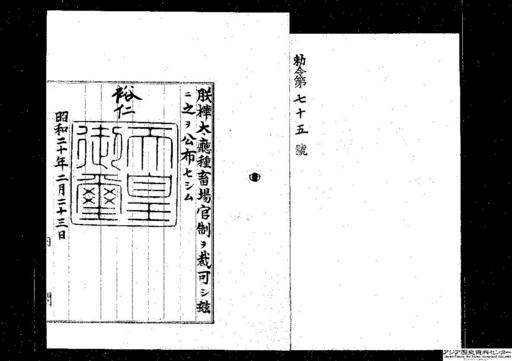 勅令第七十五號
朕樺太廳種畜場官制ヲ裁可シ玆
ニ之ヲ公布セシム
裕仁
天皇御璽
昭和二十年二月二十三日
内閣
アジア歴史資料センター